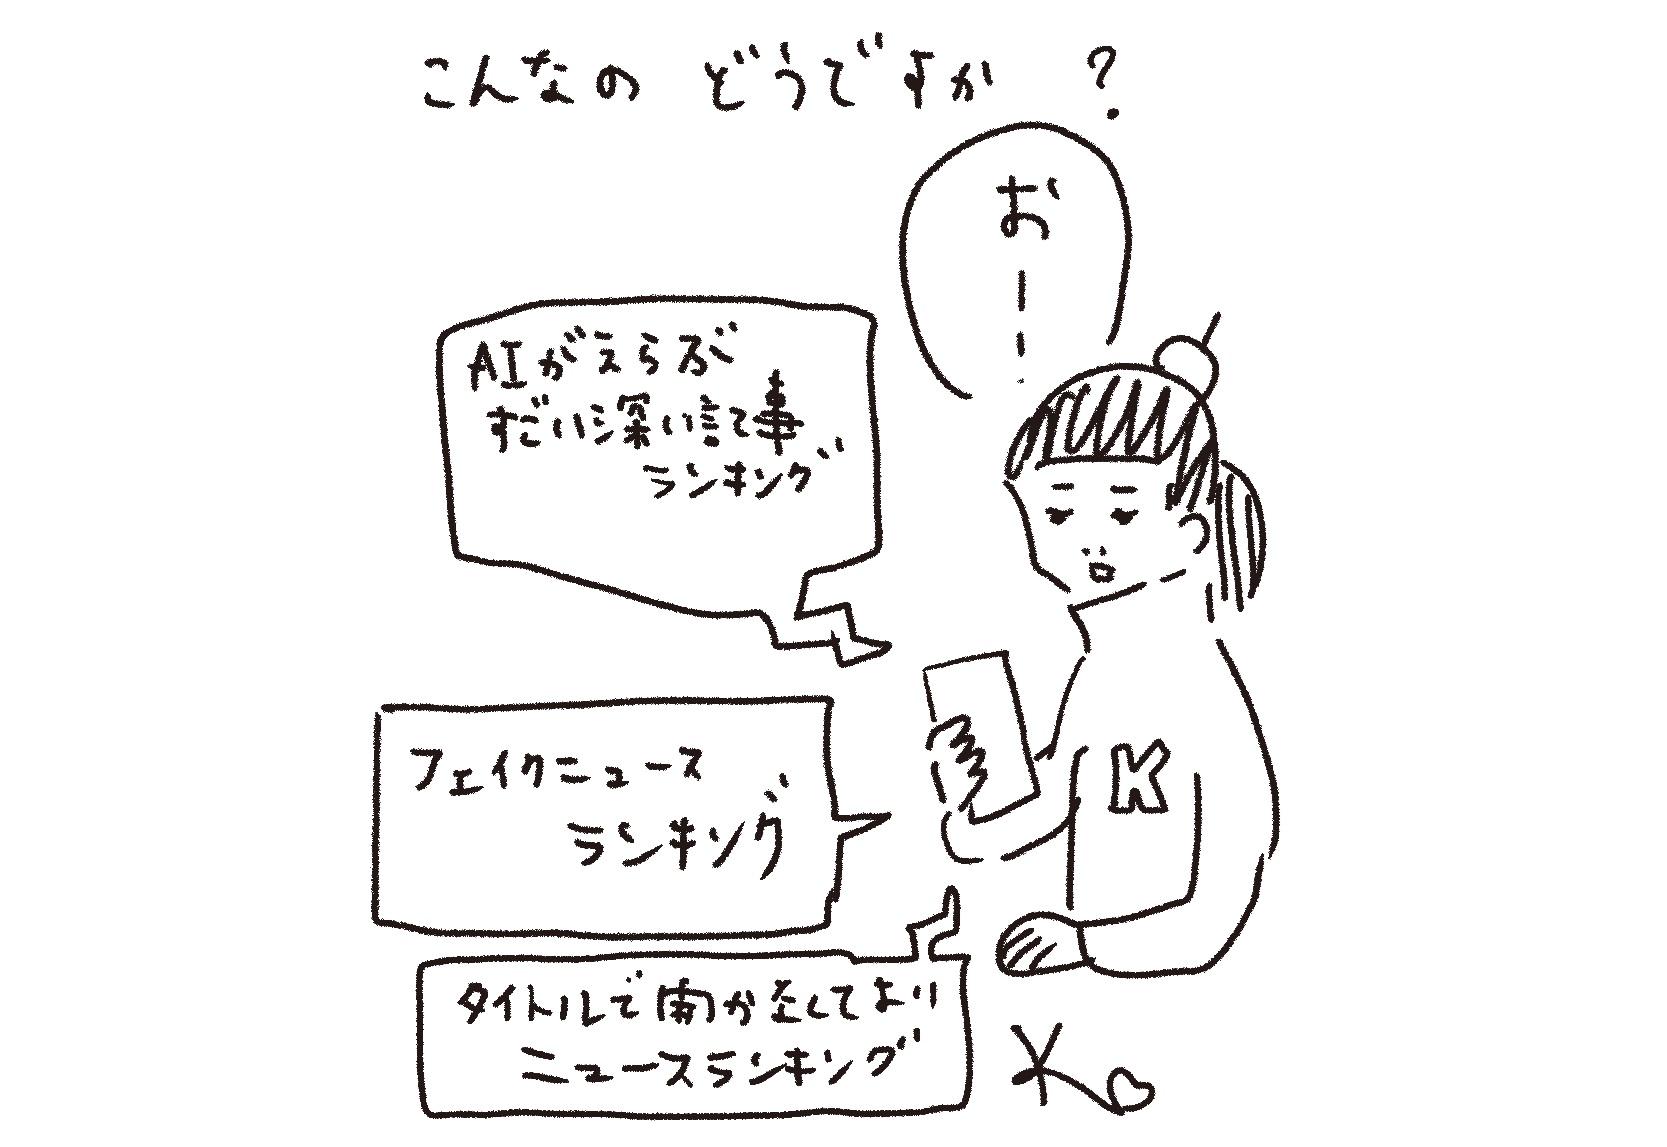 こんなの どうですか?
おー
AIがえらぶ
すごい深い記事
ランキング
K
フェイクニュース
ランキング
タイトルで
ニュースランキング